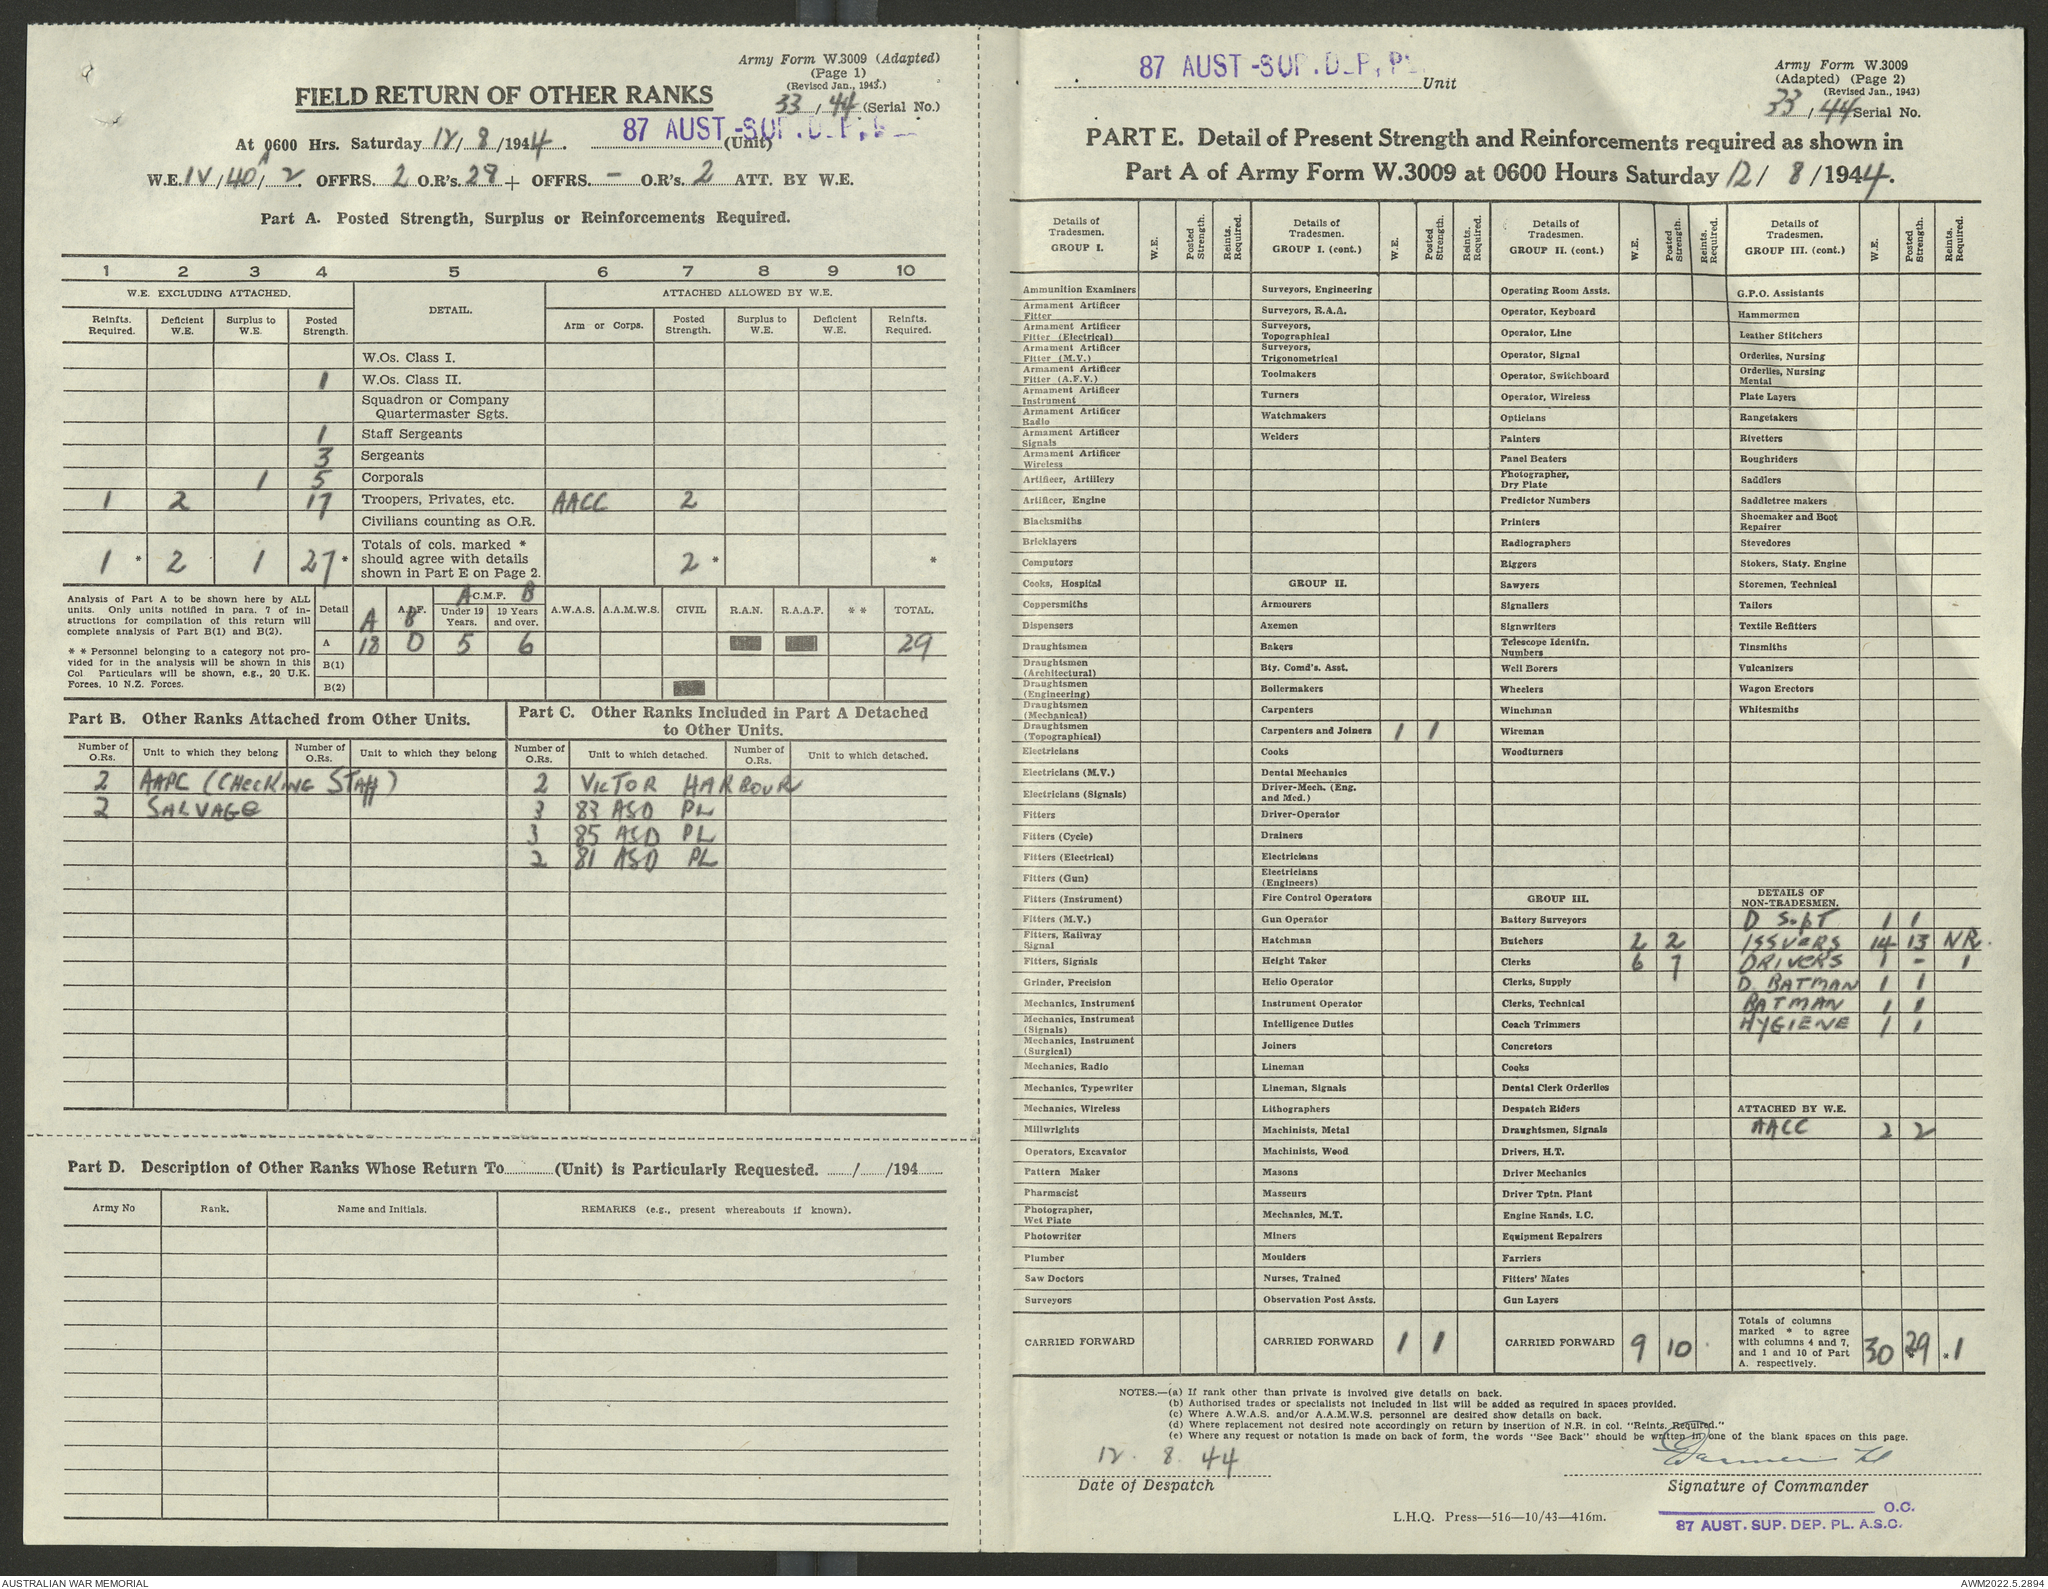 Army Form W.3009 (Adapted)
(Page 1)
(Revised Jan., 1943.)
33 / 44 (Serial No.)
FIELD RETURN OF OTHER RANKS
87 AUST.-SUP.
At 0600 Hrs. Saturday 12/ 8 /1944. (Unit)
W.E. IV/40A/2. OFFRS. 2 O.R's. 28 + OFFRS. – O.R's. 2 ATT. BY W.E.
Part A. Posted Strength, Surplus or Reinforcements Required.
1 2 3 4 5 6 7 8 9 10
W.E. EXCLUDING ATTACHED. DETAIL. ATTACHED ALLOWED BY W.E.
Reinfts. Required. Deficient W.E. Surplus to W.E. Posted Strength. Arm or Corps. Posted Strength. Surplus to W.E. Deficient W.E. Reinfts. Required.
W.Os. Class I.
1 W.Os. Class II.
Squadron or Company Quartermaster Sgts.
1 Staff Sergeants
3 Sergeants
1 5 Corporals
1 2 17 Troopers, Privates, etc. AACC 2
Civilians counting as O.R.
1 * 2 1 27 * Totals of cols. marked * should agree with details shown in Part E on Page 2. 2 * *
Analysis of Part A to be shown here by ALL units. Only units notified in para. 7 of instructions for compilation of this return will complete analysis of Part B(1) and B(2).
* * Personnel belonging to a category not provided for in the analysis will be shown in this Col Particulars will be shown, e.g., 20 U.K. Forces, 10 N.Z. Forces.
Detail A A.I.F. B A C.M.F. B Under 19 Years. 19 Years and over. A.W.A.S. A.A.M.W.S. CIVIL R.A.N. R.A.A.F. * * TOTAL.
A 18 0 5 6 29
B(1)
B(2)
Part B. Other Ranks Attached from Other Units.
Number of O.Rs. Unit to which they belong Number of O.Rs. Unit to which they belong
2 AAPC (CHECKING STAFF)
2 SALVAGE
Part C. Other Ranks Included in Part A Detached to Other Units.
Number of O.Rs. Unit to which detached. Number of O.Rs. Unit to which detached.
2 VICTOR HARBOUR
3 83 ASD PL
3 85 ASD PL
2 81 ASD PL
Part D. Description of Other Ranks Whose Return To (Unit) is Particularly Requested. / /194
Army No Rank. Name and Initials. REMARKS (e.g., present whereabouts if known).
87 AUST-SUP.DEP, PL Unit
Army Form W.3009
(Adapted) (Page 2)
(Revised Jan., 1943)
33 / 44 Serial No.
PART E. Detail of Present Strength and Reinforcements required as shown in
Part A of Army Form W.3009 at 0600 Hours Saturday 12/ 8 /1944.
Details of Tradesmen. GROUP I. W.E. Posted Strength. Reints. Required.
Ammunition Examiners
Armament Artificer Fitter
Armament Artificer Fitter (Electrical)
Armament Artificer Fitter (M.V.)
Armament Artificer Fitter (A.F.V.)
Armament Artificer Instrument
Armament Artificer Radio
Armament Artificer Signals
Armament Artificer Wireless
Artificer, Artillery
Artificer, Engine
Blacksmiths
Bricklayers
Computors
Cooks, Hospital
Coppersmiths
Dispensers
Draughtsmen
Draughtsmen (Architectural)
Draughtsmen (Engineering)
Draughtsmen (Mechanical)
Draughtsmen (Topographical)
Electricians
Electricians (M.V.)
Electricians (Signals)
Fitters
Fitters (Cycle)
Fitters (Electrical)
Fitters (Gun)
Fitters (Instrument)
Fitters (M.V.)
Fitters, Railway Signal
Fitters, Signals
Grinder, Precision
Mechanics, Instrument
Mechanics, Instrument (Signals)
Mechanics, Instrument (Surgical)
Mechanics, Radio
Mechanics, Typewriter
Mechanics, Wireless
Millwrights
Operators, Excavator
Pattern Maker
Pharmacist
Photographer, Wet Plate
Photowriter
Plumber
Saw Doctors
Surveyors
CARRIED FORWARD
Details of Tradesmen. GROUP I. (cont.) W.E. Posted Strength. Reints. Required.
Surveyors, Engineering
Surveyors, R.A.A.
Surveyors, Topographical
Surveyors, Trigonometrical
Toolmakers
Turners
Watchmakers
Welders
GROUP II.
Armourers
Axemen
Bakers
Bty. Comd's. Asst.
Boilermakers
Carpenters
Carpenters and Joiners 1 1
Cooks
Dental Mechanics
Driver-Mech. (Eng. and Med.)
Driver-Operator
Drainers
Electricians
Electricians (Engineers)
Fire Control Operators
Gun Operator
Hatchman
Height Taker
Helio Operator
Instrument Operator
Intelligence Duties
Joiners
Lineman
Lineman, Signals
Lithographers
Machinists, Metal
Machinists, Wood
Masons
Masseurs
Mechanics, M.T.
Miners
Moulders
Nurses, Trained
Observation Post Assts.
CARRIED FORWARD 1 1
Details of Tradesmen. GROUP II. (cont.) W.E. Posted Strength. Reints. Required.
Operating Room Assts.
Operator, Keyboard
Operator, Line
Operator, Signal
Operator, Switchboard
Operator, Wireless
Opticians
Painters
Panel Beaters
Photographer, Dry Plate
Predictor Numbers
Printers
Radiographers
Riggers
Sawyers
Signallers
Signwriters
Telescope Identfn. Numbers
Well Borers
Wheelers
Winchman
Wireman
Woodturners
GROUP III.
Battery Surveyors
Butchers 2 2
Clerks 6 7
Clerks, Supply
Clerks, Technical
Coach Trimmers
Concretors
Cooks
Dental Clerk Orderlies
Despatch Riders
Draughtsmen, Signals
Drivers, H.T.
Driver Mechanics
Driver Tptn. Plant
Engine Hands, I.C.
Equipment Repairers
Farriers
Fitters' Mates
Gun Layers
CARRIED FORWARD 9 10
Details of Tradesmen. GROUP III. (cont.) W.E. Posted Strength. Reints Required.
G.P.O. Assistants
Hammermen
Leather Stitchers
Orderlies, Nursing
Orderlies, Nursing Mental
Plate Layers
Rangetakers
Rivetters
Roughriders
Saddlers
Saddletree makers
Shoemaker and Boot Repairer
Stevedores
Stokers, Staty. Engine
Storemen, Technical
Tailors
Textile Refitters
Tinsmiths
Vulcanizers
Wagon Erectors
Whitesmiths
DETAILS OF NON-TRADESMEN.
D Supt 1 1
ISSUERS 14 13 NR.
DRIVERS 1 – 1
D. BATMAN 1 1
BATMAN 1 1
HYGIENE 1 1
ATTACHED BY W.E.
AACC 2 2
Totals of columns marked * to agree with columns 4 and 7, and 1 and 10 of Part A. respectively. 30 29 * * 1
NOTES.—(a) If rank other than private is involved give details on back.
(b) Authorised trades or specialists not included in list will be added as required in spaces provided.
(c) Where A.W.A.S. and/or A.A.M.W.S. personnel are desired show details on back.
(d) Where replacement not desired note accordingly on return by insertion of N.R. in col. "Reints. Required."
(e) Where any request or notation is made on back of form, the words "See Back" should be written in one of the blank spaces on this page.
12. 8. 44
Date of Despatch
Signature of Commander
O.C.
87 AUST. SUP. DEP. PL. A.S.C.
L.H.Q. Press—516—10/43—416m.
AUSTRALIAN WAR MEMORIAL
AWM2022.5.2894